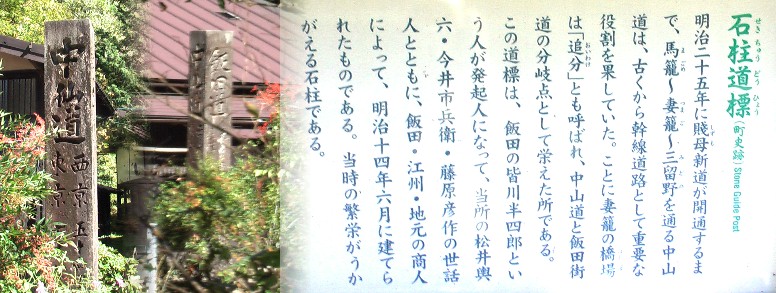 中山道 西京 五十
東京
飯田道
中山道
石柱道標(町史跡) Stone Guide Post
せきちゅうどうひょう
明治二十五年に賤母新道が開通するま
で、馬籠~妻籠~三留野を通る中山
道は、古くから幹線道路として重要な
役割を果していた。ことに妻籠の橋場
は「追分」とも呼ばれ、中山道と飯田街
道の分岐点として栄えた所である。
この道標は、飯田の皆川半四郎とい
う人が発起人になって、当所の松井興
六・今井市兵衛・藤原彦作の世話
人とともに、飯田・江州・地元の商人
によって、明治十四年六月に建てら
れたものである。当時の繁栄がうか
がえる石柱である。